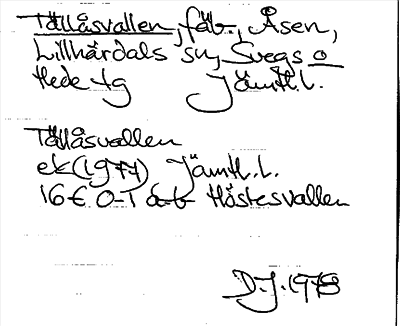 Tällåsvallen, fäb., Åsen,
Lillhärdals sn, Svegs o
Hede tg Jämtl.l.
Tällåsvallen
ek (1977) Jämtl.l.
16E 0-1 a-b Höstesvallen
D.J. 1978